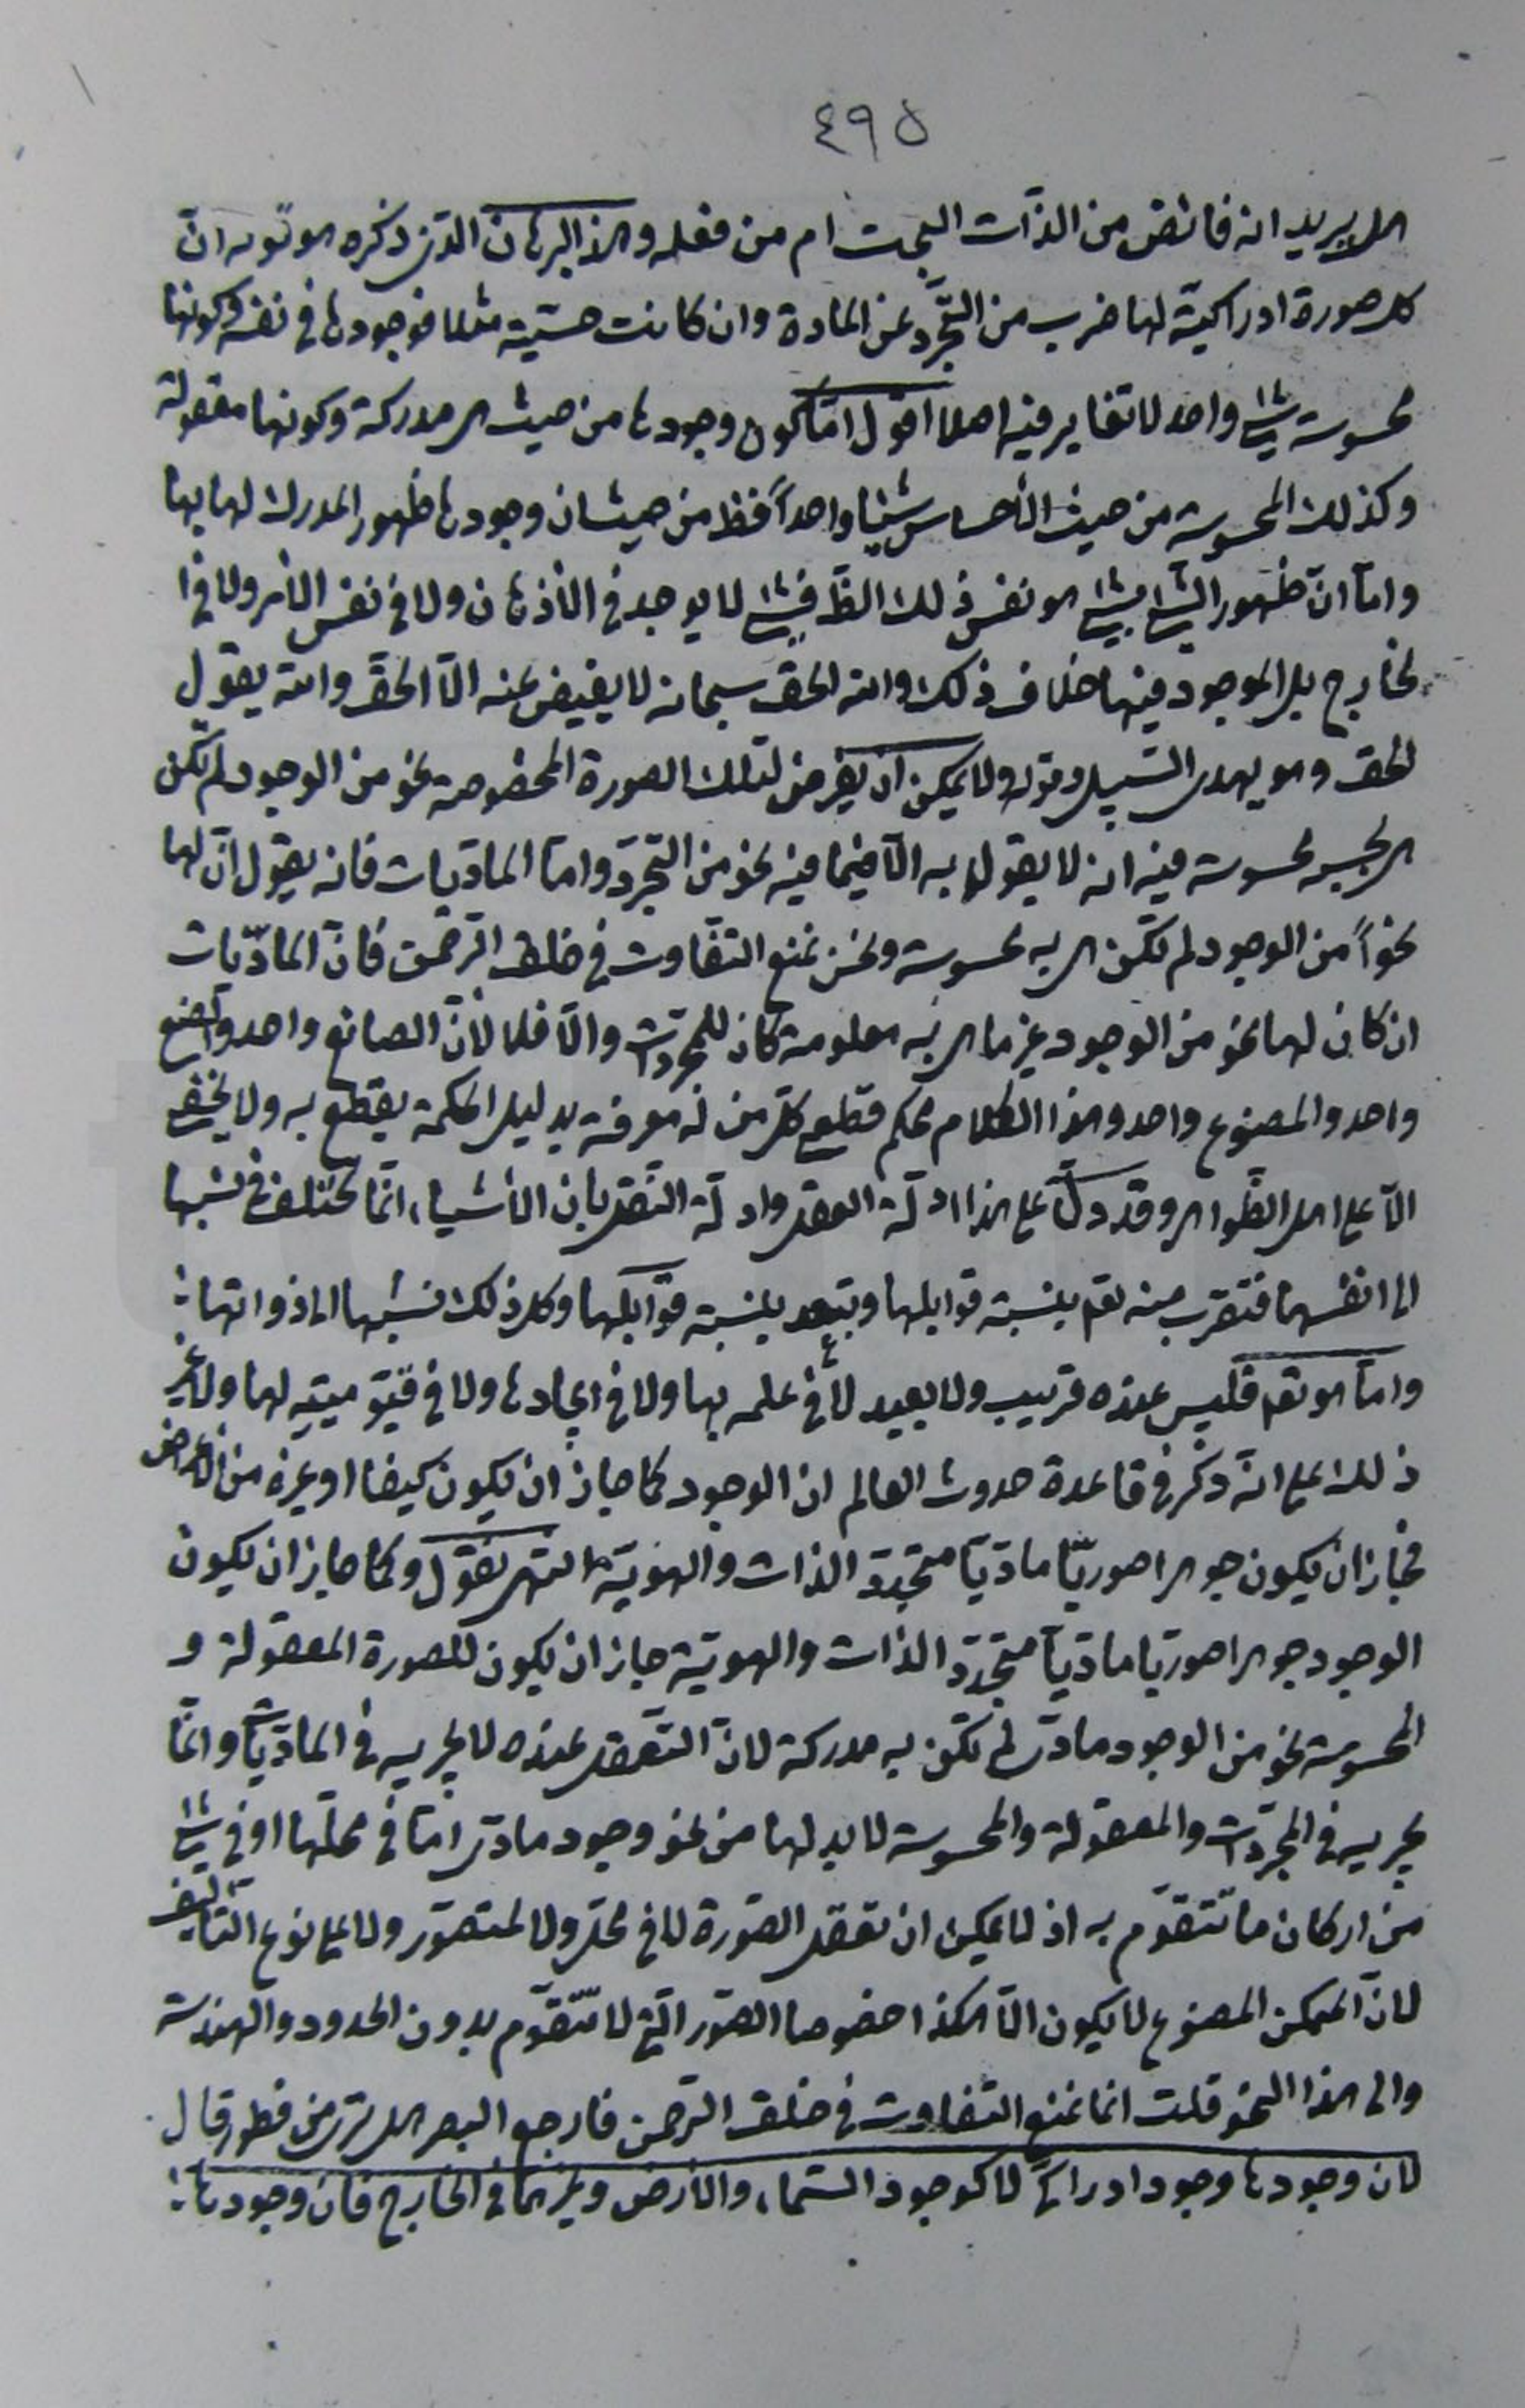 ٤٩٥
هل يريد انه فائض من الذّات البحت ام من فعله وهذا البرهان الذى ذكره هو قوله انّ
كل صورة ادراكيّة لها ضرب من التّجرّد عن المادة وان كانت حسّيّة مثلا فوجودها فى نفسه وكونها
محسوسة شئ واحد لا تغاير فيه اصلا اقول امّا كون وجودها من حيث هى مدركة وكونها معقولة
وكذلك المحسوسة من حيث الأحساس شيئا واحداً فظ من حيث ان وجودها ظهور المدرك لها بها
وامّا انّ ظهور الشئ بشئ هو نفس ذلك الظّ فشئ لا يوجد فى الأذهان ولا فى نفس الأمر ولا فى ا
لخارج بل الموجود فيها خلاف ذلك والله الحق سبحانه لا يفيض عنه الّا الحقّ والله يقول
الحق وهو يهدى السّبيل وقوله ولا يمكن ان يفرض لتلك الصورة المخصوصة نحو من الوجود لم تكن
هى بحسبه محسوسة فيه انه لا يقول به الّا فيما فيه نحو من التّجرّد وامّا المادّيات فانه يقول انّ لها
نحواً من الوجود لم تكن هى به محسوسة ونحن نمنع التّفاوت فى خلق الرّحمن فانّ المادّيات
ان كان لها نحو من الوجود غير ما هى به معلومة كان للمجرّدات والّا فلا لأنّ الصانع واحد والصنع
واحد والمصنوع واحد وهذا الكلام محكم قطعى كلّ من له معرفة بدليل الحكمة يقطع به ولا يخفى
الّا على اهل الظّواهر وقد دلّ على هذا ادلّة العقل وادلّة النّقل بان الأشياء انّما تختلف فى نسبها
الى انفسها فتقرب منه تعم بنسبة قوابلها وتبعد بنسبة قوابلها وكل ذلك نسبتها الى ذواتها
وامّا هو تعم فليس عنده قريب ولا بعيد لا فى علمه بها ولا فى ايجادها ولا فى قيّوميّته لها ولا غير
ذلك على انّه ذكر فى قاعدة حدوث العالم ان الوجود كما جاز ان يكون كيفا او غيره من الأعراض
فجاز ان يكون جوهرا صوريّا مادّيّا متجدّد الذات والهويّة انتهى نقول وكما جاز ان يكون
الوجود جوهرا صوريا مادّيّا متجدّد الذات والهويّة جاز ان يكون للصورة المعقولة و
المحسوسة نحو من الوجود مادّى لم تكن به مدركة لانّ التّعقل عنده لا يجريه فى المادّيّات وانّما
يجريه فى المجرّدات والمعقولة والمحسوسة لا بد لها من نحو وجود مادّى امّا فى محلّها او فى شئ
من اركان ما تتقوّم به اذ لا يمكن ان تعقل الصّورة لا فى محل ولا لمتصوّر ولا على نوع التّأليف
لانّ الممكن المصنوع لا يكون الّا هكذا خصوصا الصّور الّتى لا تتقوّم بدون الحدود والهندسة
والى هذا النّحو قلت انما نمنع التفاوت فى خلق الرّحمن فارجع البصر هل ترى من فطور قال
لان وجودها وجود ادراكىّ لا كوجود السّماء والأرض وغيرهما فى الخارج فان وجودها